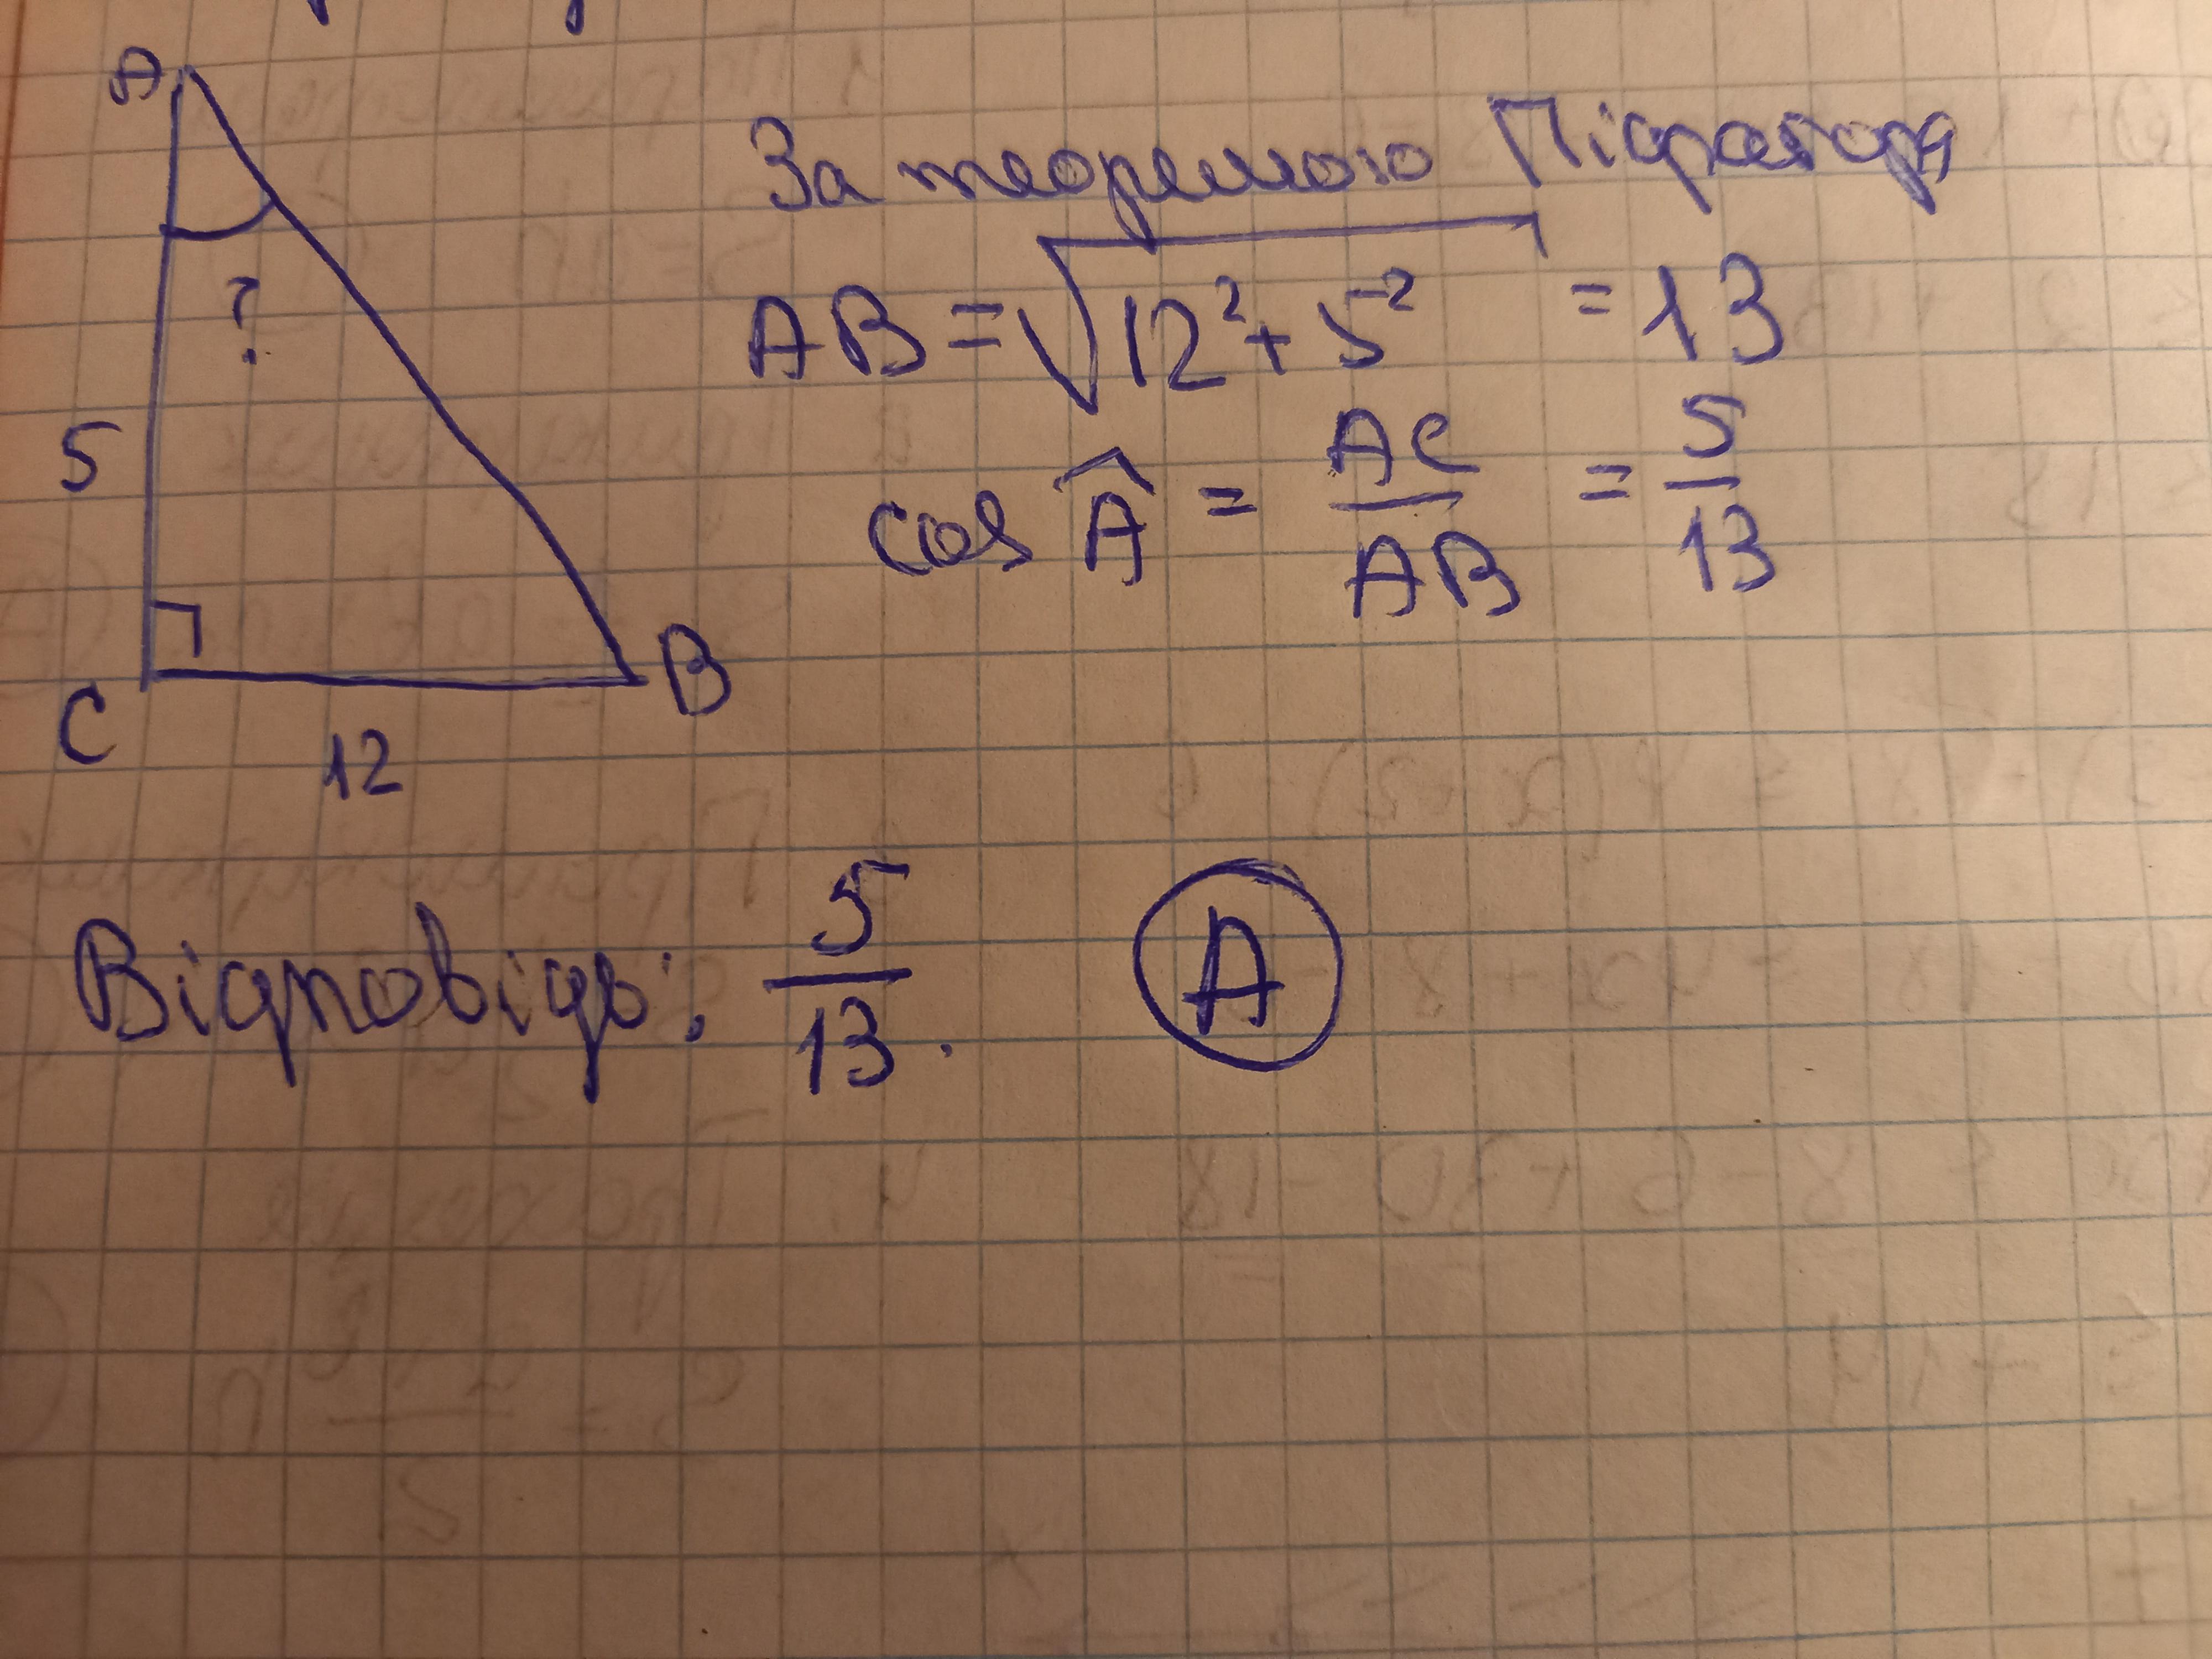 A
За теоремою Піфагора
?
AB = √12² + 5² = 13
5
cos Â = AC/AB = 5/13
C
B
12
Відповідь: 5/13. A